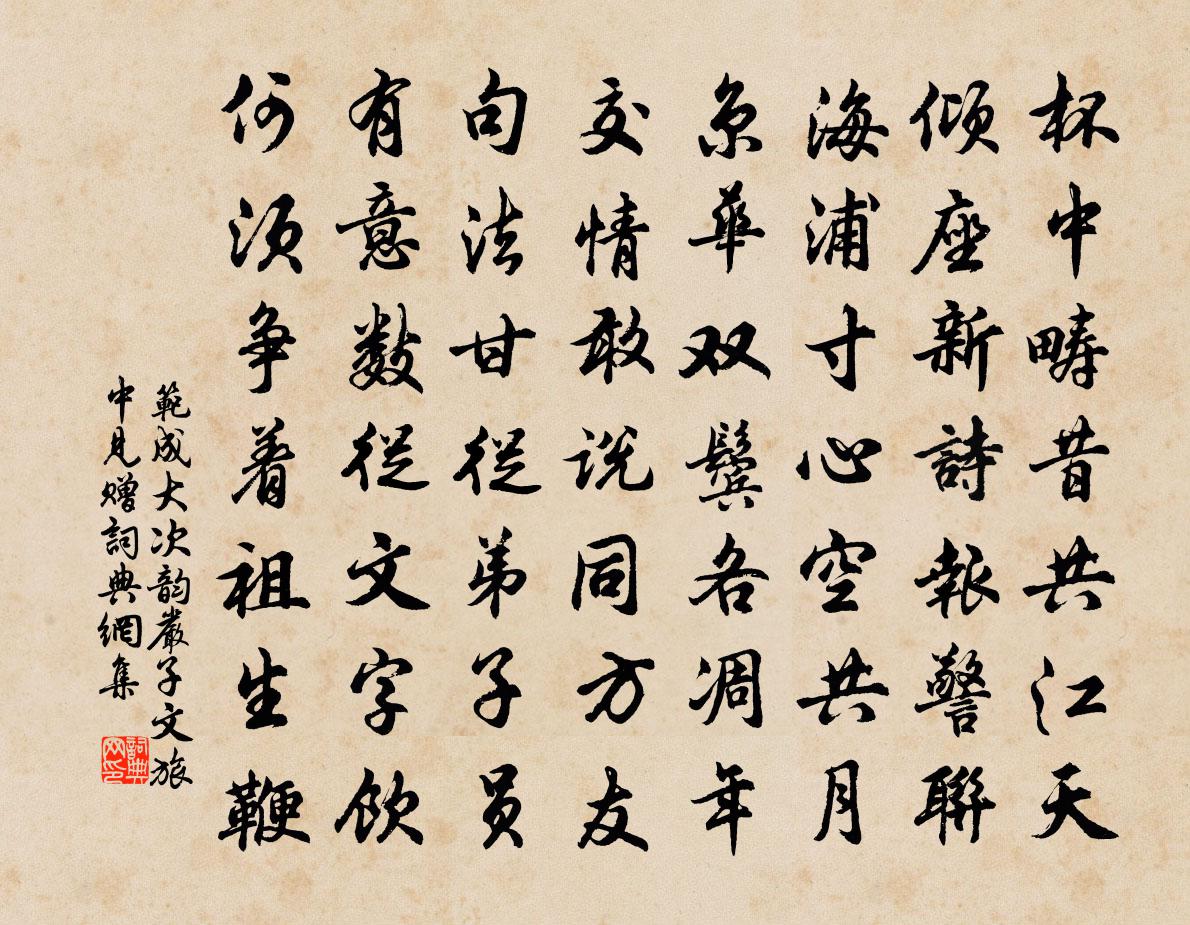 杯中畴昔共江天
倾座新詩報警聯
海浦寸心空共月
京華双鬓各凋年
交情敢说同方友
句法甘従弟子员
有意数従文字饮
何须争着祖生鞭
範成大次韵嚴子文旅
中見赠詞典網集
詞典网印